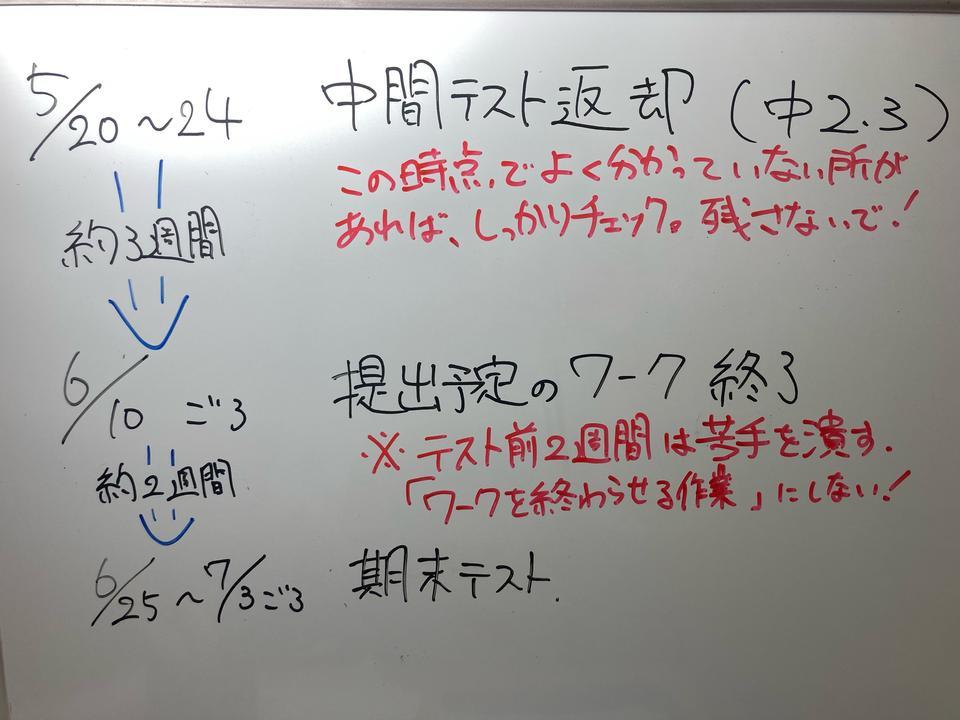 5/20～24 中間テスト返却（中2.3）
この時点でよく分かっていない所が
あれば、しっかりチェック。残さないで！
約3週間
6/10 ごろ 提出予定のワーク終了
※テスト前2週間は苦手を潰す.
約2週間 「ワークを終わらせる作業」にしない！
6/25～7/3ごろ 期末テスト.